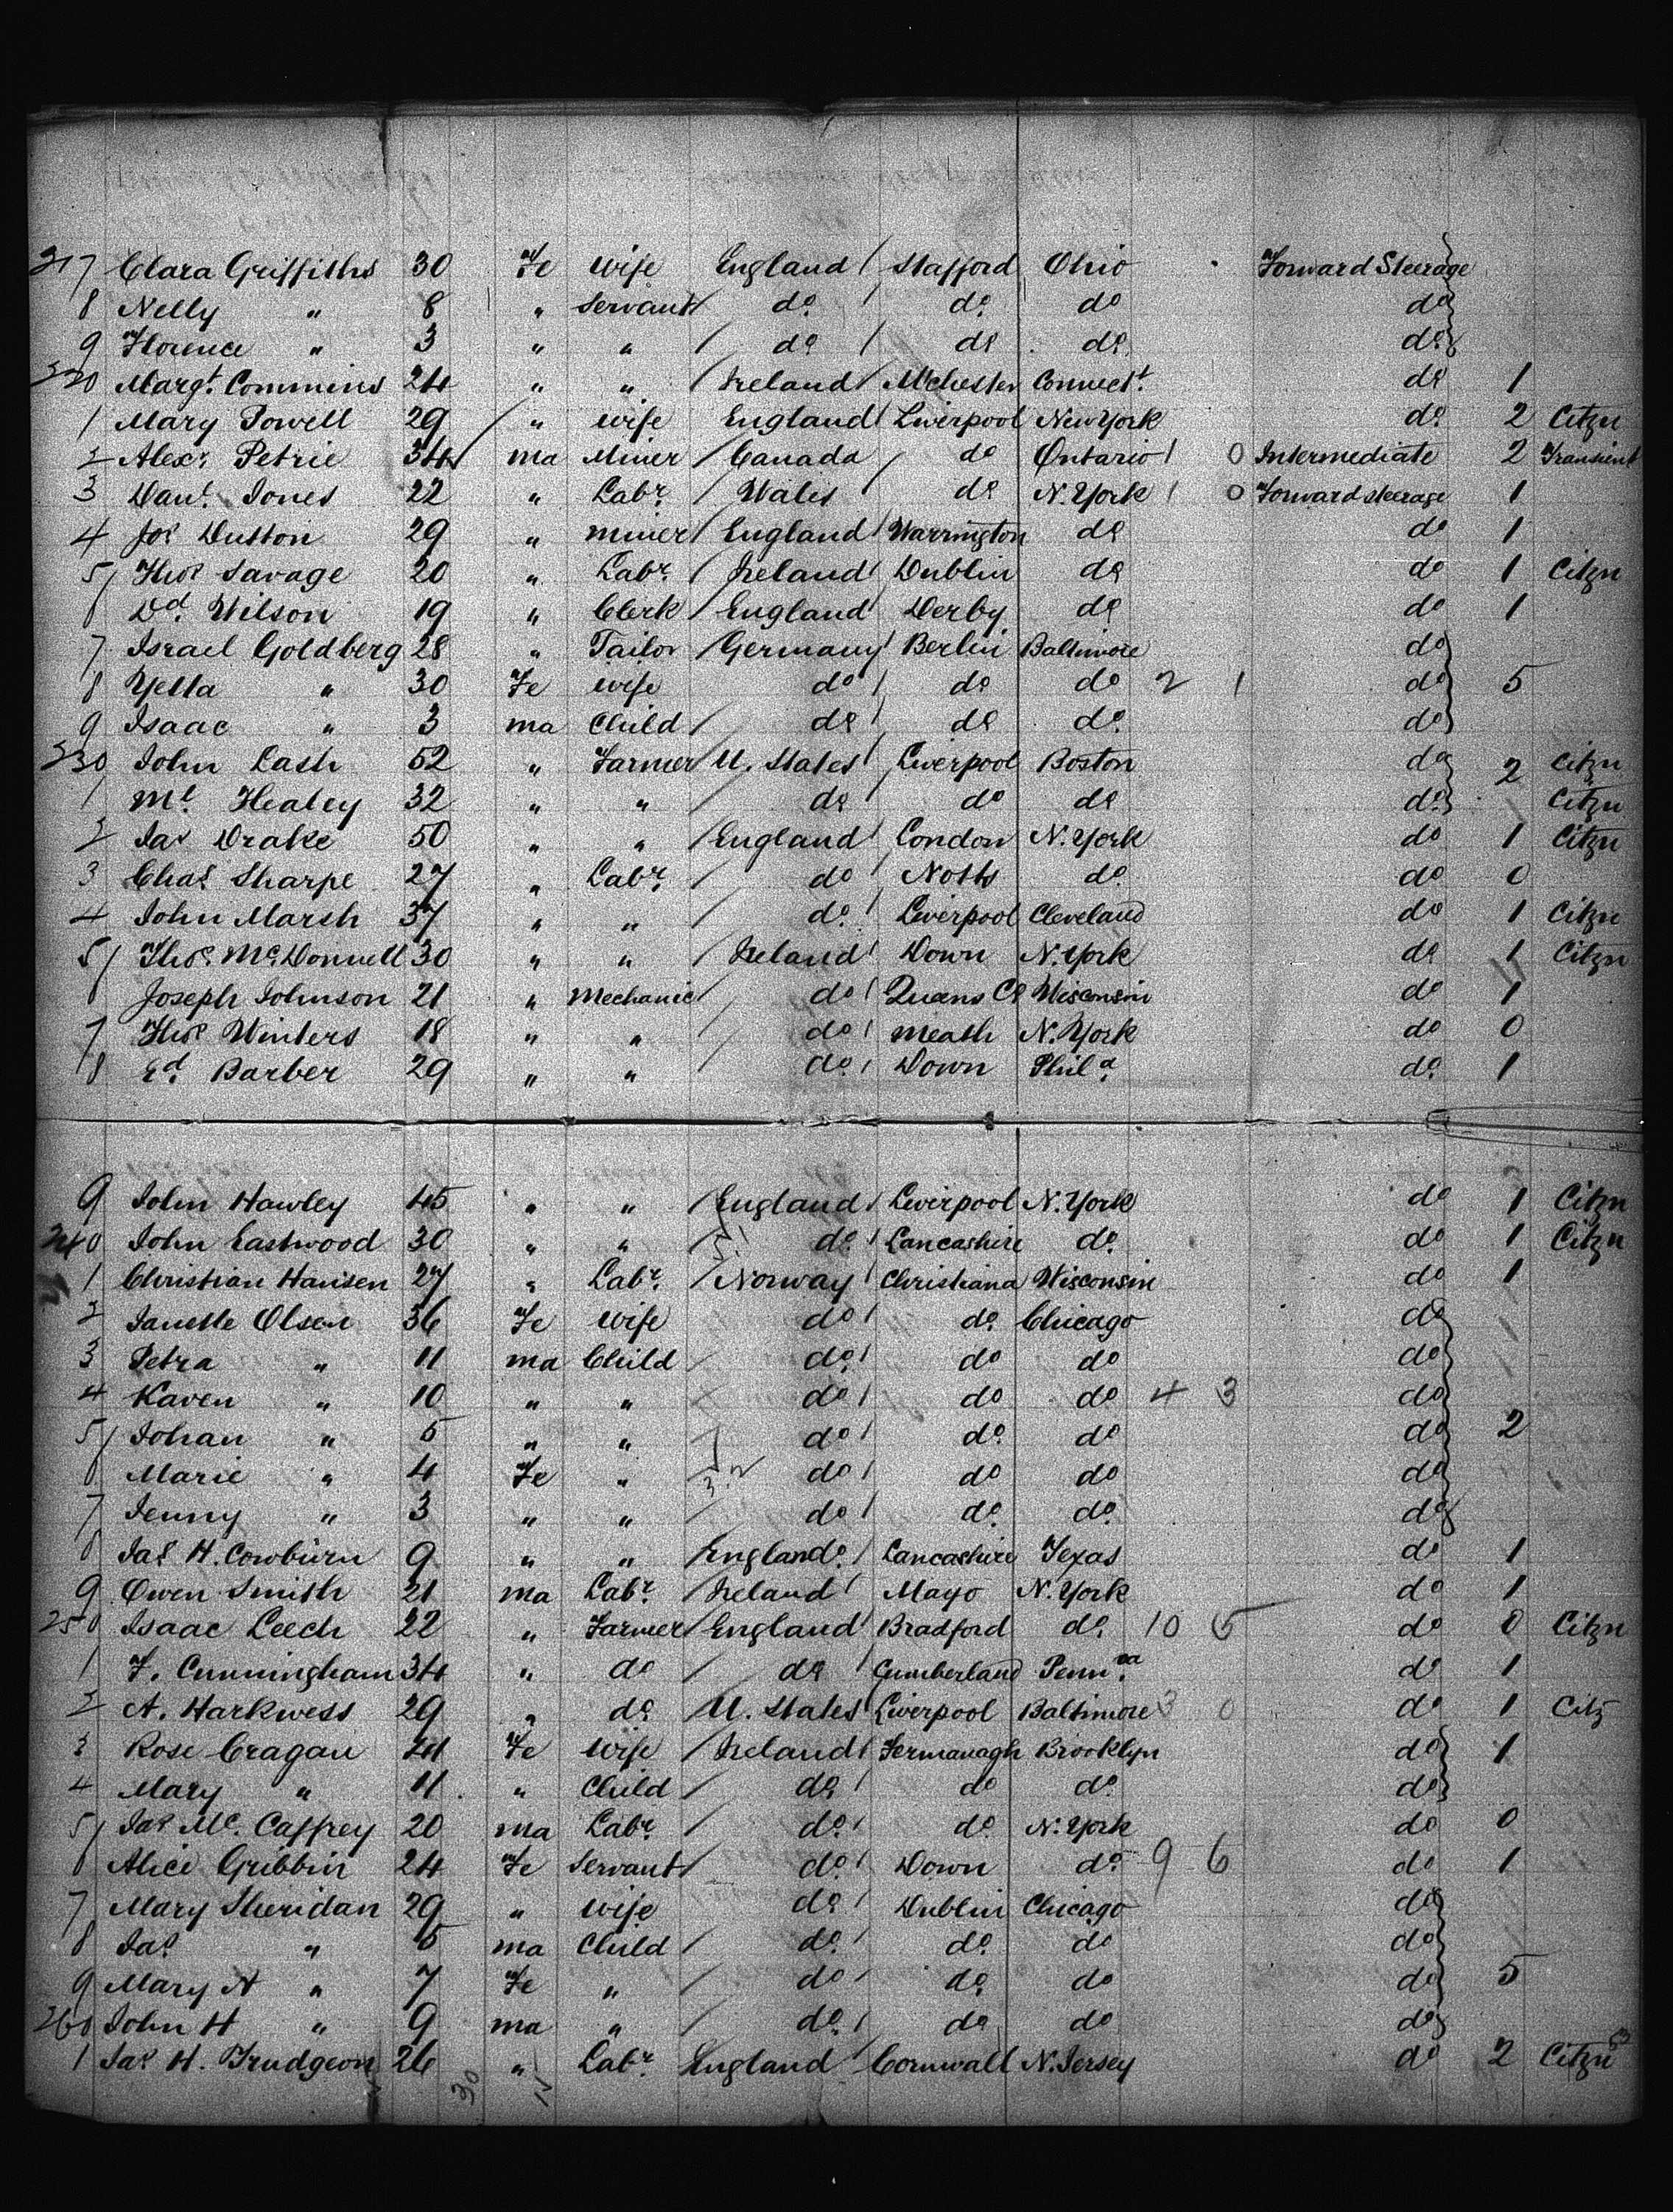 317 Clara Griffiths 30 Fe wife England Stafford Ohio Forward Steerage
8 Nelly " 8 " Servant do do do do
9 Florence " 3 " " do do do do
320 Margt. Commins 24 " " Ireland M'chester Connectt. do 1
1 Mary Powell 29 " wife England Liverpool New York do 2 Citzn
2 Alexr. Petrie 34 ma Miner Canada do Ontario 1 0 Intermediate 2 Transient
3 Danl. Jones 22 " Labr. Wales do N. York 1 0 Forward steerage 1
4 Jos Dutton 29 " miner England Warrington do do 1
5 Thos Savage 20 " Labr. Ireland Dublin do do 1 Citzn
6 Dd. Wilson 19 " Clerk England Derby do do 1
7 Israel Goldberg 28 " Tailor Germany Berlin Baltimore do
8 Yetta " 30 Fe wife do do do 2 1 do 5
9 Isaac " 3 ma Child do do do do
330 John Cash 52 " Farmer U. States Liverpool Boston do 2 Citzn
1 Ml. Healey 32 " " do do do do Citzn
2 Jas Drake 50 " " England London N. York do 1 Citzn
3 Chas Sharpe 27 " Labr. do Notts do do 0
4 John Marsh 37 " " do Liverpool Cleveland do 1 Citzn
5 Thos. McDonnell 30 " " Ireland Down N. York do 1 Citzn
6 Joseph Johnson 21 " Mechanic do Queens Co Wisconsin do 1
7 Thos Winters 18 " " do Meath N. York do 0
8 Ed. Barber 29 " " do Down Phila do 1
9 John Hawley 45 " " England Liverpool N. York do 1 Citzn
340 John Eastwood 30 " " do Lancashire do do 1 Citzn
1 Christian Hansen 27 " Labr. Norway Christiana Wisconsin do 1
2 Janette Olsen 36 Fe wife do do Chicago do
3 Petra " 11 ma Child do do do do
4 Karen " 10 " " do do do 4 3 do
5 Johan " 5 " " do do do do 2
6 Marie " 4 Fe " do do do do
7 Jenny " 3 " " do do do do
8 Jas H. Cowburn 9 " " England Lancashire Texas do 1
9 Owen Smith 21 ma Labr. Ireland Mayo N. York do 1
250 Isaac Leech 22 " Farmer England Bradford do 10 5 do 0 Citzn
1 F. Cunningham 34 " do do Cumberland Penna. do 1
2 A. Harkness 29 " do U. States Liverpool Baltimore 3 0 do 1 Citz
3 Rose Cragan 24 Fe wife Ireland Fermanagh Brooklyn do 1
4 Mary " 11 " Child do do do do
5 Jas Mc. Caffrey 20 ma Labr. do do N. York do 0
6 Alice Gribbin 24 Fe Servant do Down do 9 6 do 1
7 Mary Sheridan 29 " wife do Dublin Chicago do
8 Jas " 5 ma Child do do do do
9 Mary A " 7 Fe " do do do do 5
260 John H " 9 ma " do do do do
1 Jas H. Trudgeon 26 " Labr. England Cornwall N. Jersey do 2 Citzn
30